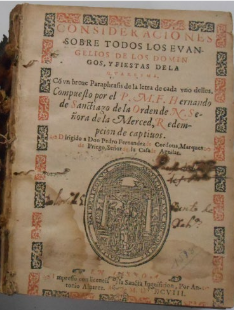 CONSIDERACIONES
SOBRE TODOS LOS EVAN-
GELIOS DE LOS DOMIN
GOS, Y FIESTAS DE LA
Cõ un breve Paraphrasis de la letra de cada uno dellos.
Compuesto por el P. M. F. Hernando
de Sanctiago de la Orden de N. Se-
ñora de la Merced, Redempcion de captivos.
Dirigido a Don Pedro Fernandez de Cordova, Marques
de Priego, Señor de la Casa de Aguilar.
Impresso con licencia de la Sancta Inquisicion, Por An-
tonio Alvarez.